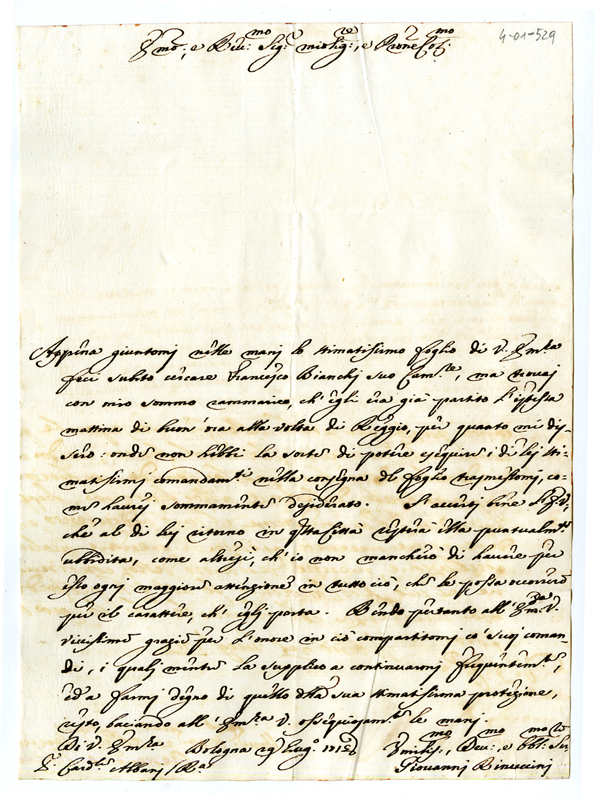 4-01-529
Emo:, e Rev:mo Sig:r mio Sig:re, e Pron Col:mo
Appena giuntomj nelle manj lo stimatissimo foglio di V. Em.za
feci subito cercare Francesco Bianchj suo Cam.re, ma trovaj
con mio sommo rammarico, ch'egli era già partito l'istessa
mattina di buon'ora alla volta di Reggio, per quanto mi dis-
sero: onde non hebbi la sorte di potere eseguire i di lej sti-
matissimj comandam.ti nella consegna del foglio trasmessomj, co-
me haverej sommamente desiderato. S'accertj bene V. Em.za,
che al di lej ritorno in q.sta Città resterà ella puntualm.te
ubbidita, come altresì, ch'io non mancherò di havere per
esso ogni maggiore attenzione in tutto ciò, che le possa occorrere
per il carattere, ch'egli porta. Rendo pertanto all'Em.za V.
vivissime grazie per l'onore in ciò compartitomj co' suoj coman-
di, i qualj mentre la supplico a continuarmj frequentem.te,
ed a farmj degno di quello della sua stimatissima protezione,
resto, baciando all'Em.za V. ossequiosam.te le manj.
Di V. Em.za Bologna 29 Lug.o
Umiliss.mo, Dev:mo, e Obb:mo Ser.re
S:r Card.le Albanj / R.a Giovannj Binuccinj